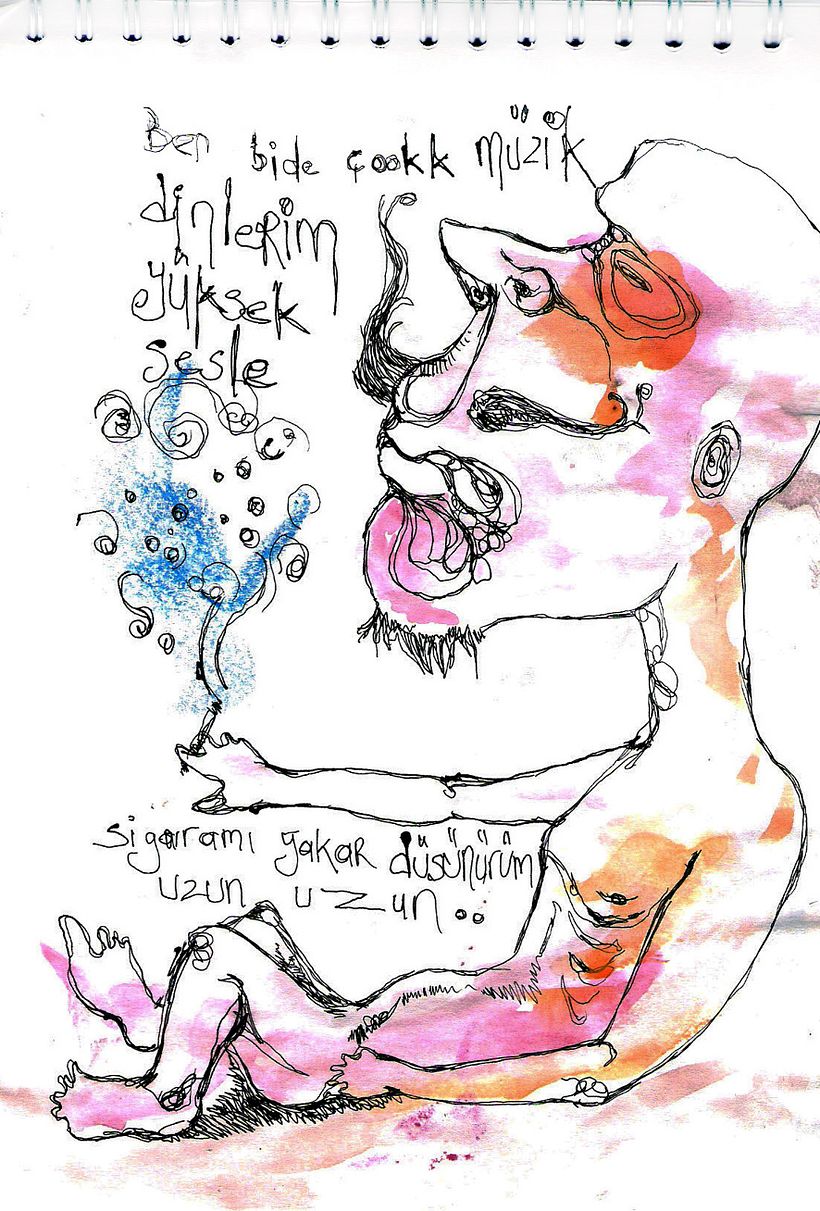 Ben bide çookk müzik
dinlerim
yüksek
sesle
sigaramı yakar düşünürüm
uzun uzun..